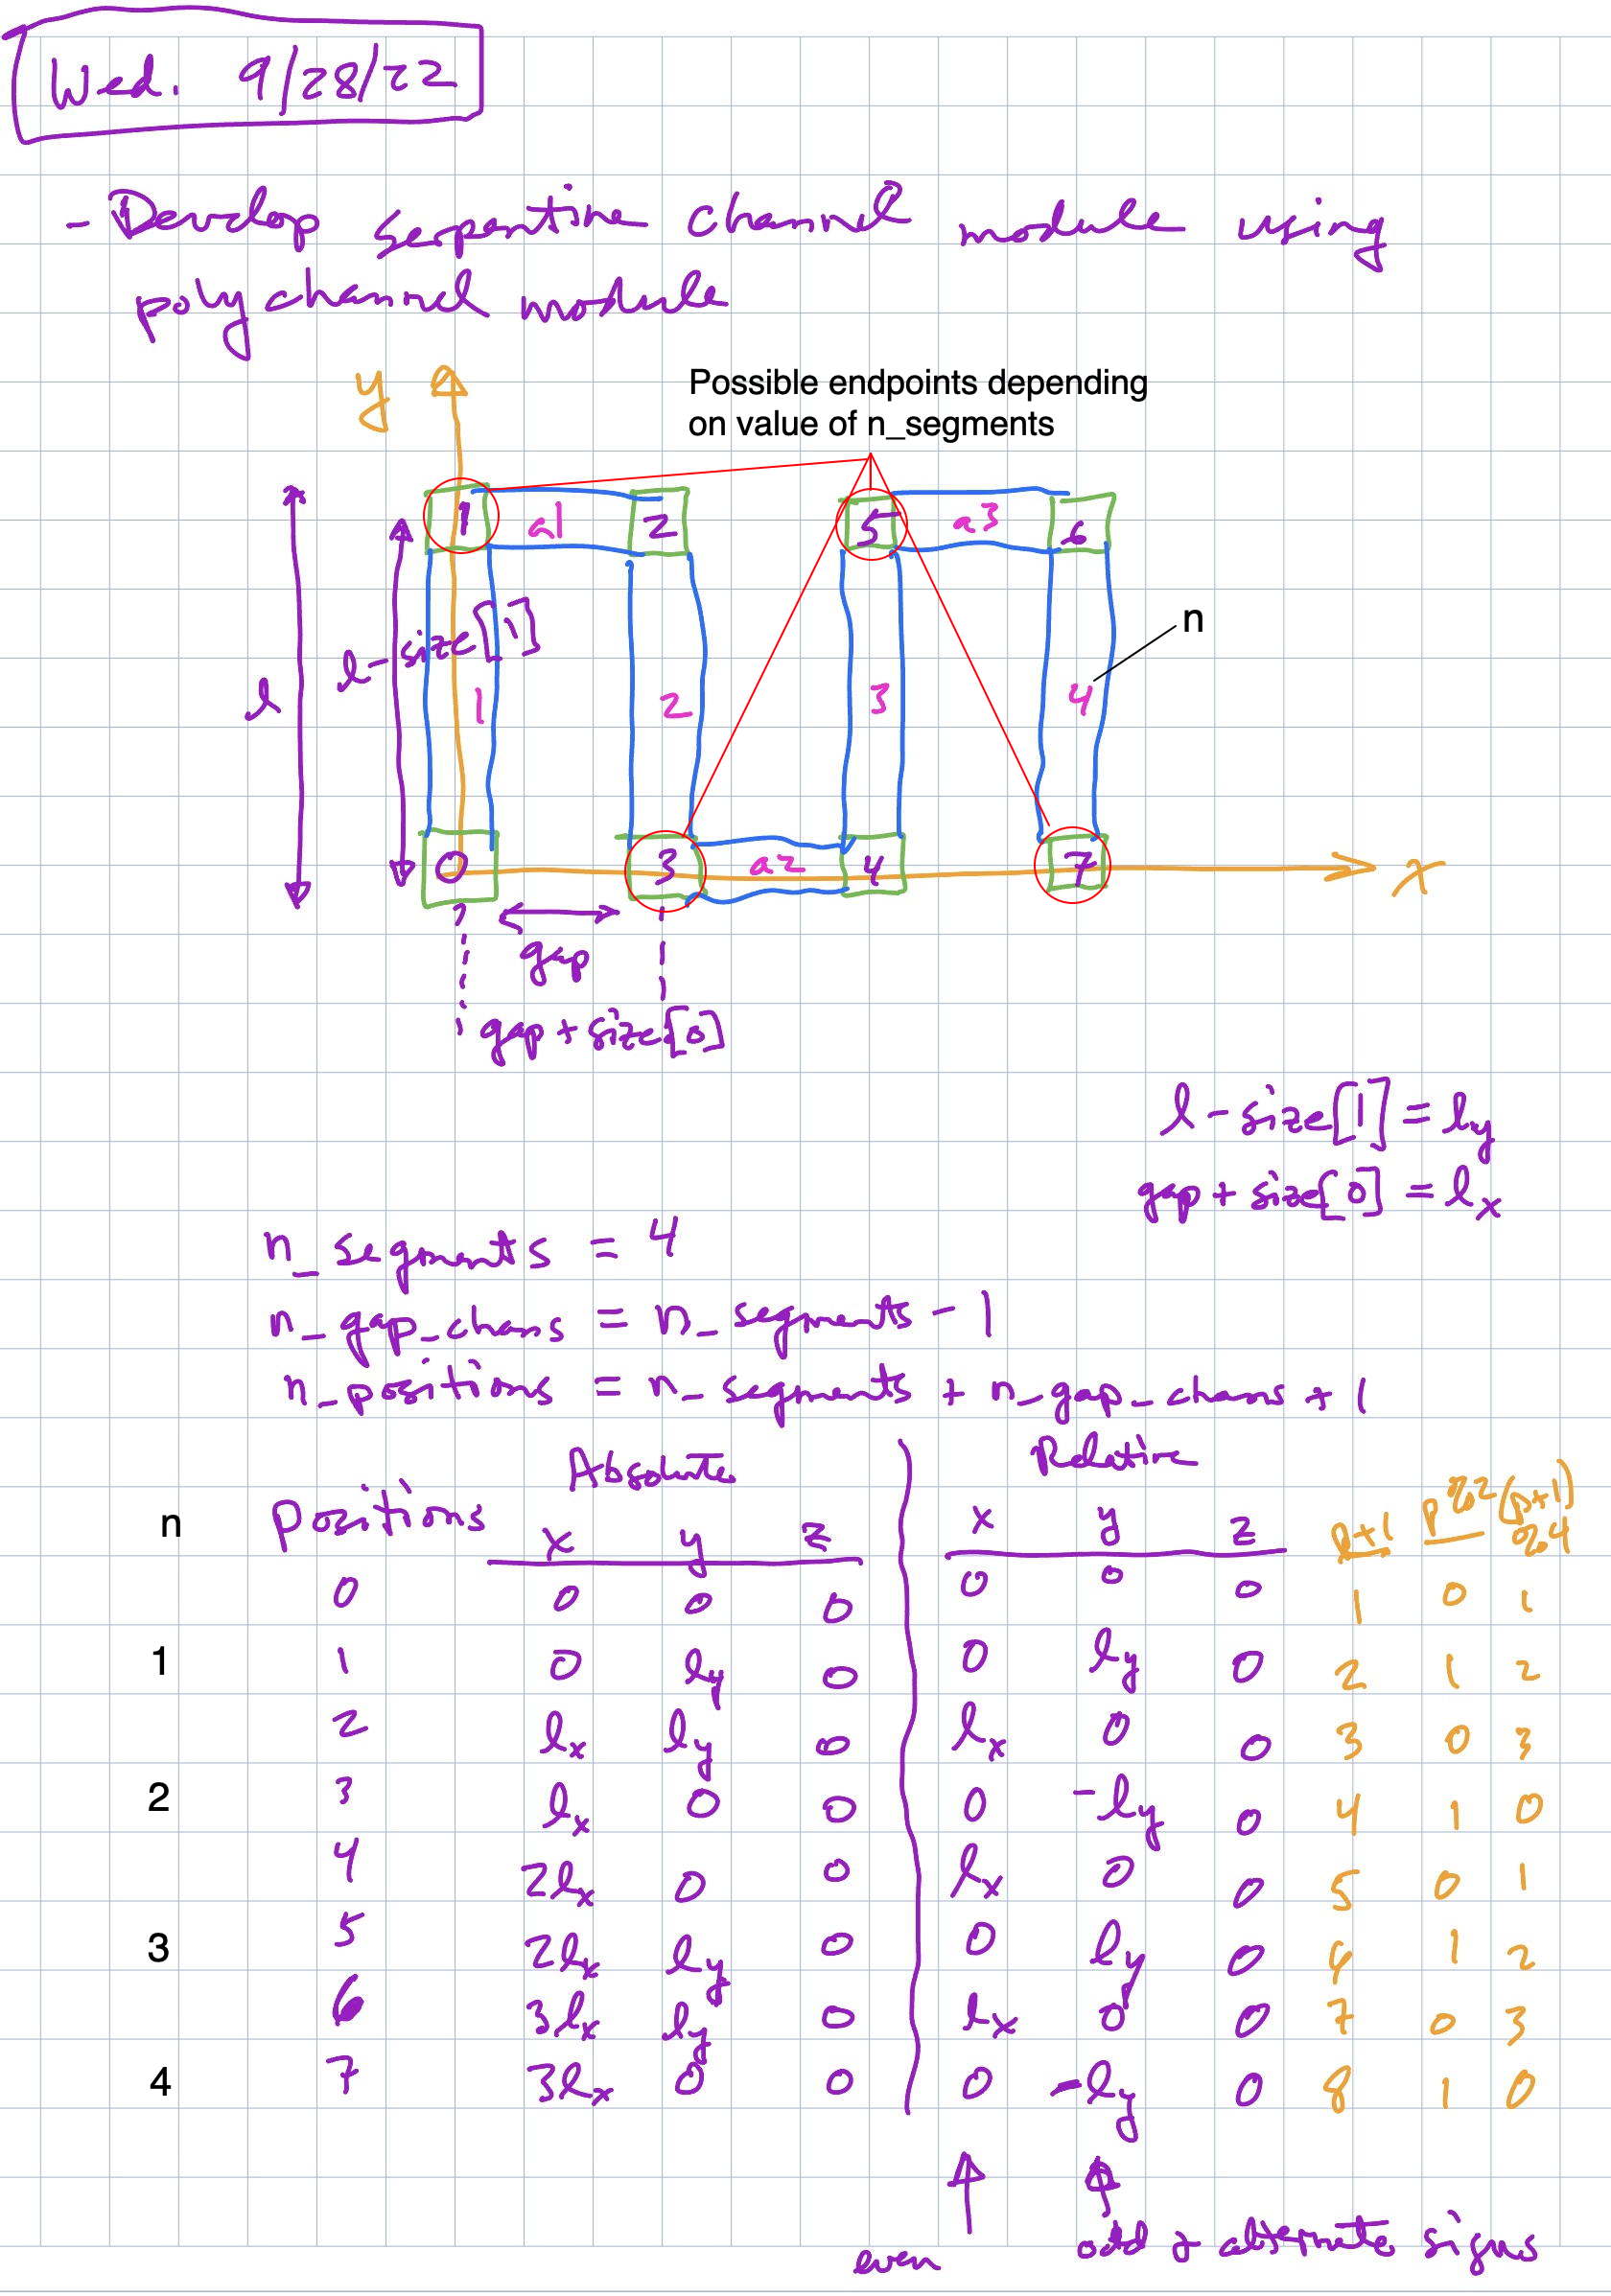 Wed. 9/28/22
- Develop serpentine channel module using
polychannel module
Possible endpoints depending
on value of n_segments
y
1 a1 2 5 a3 6
n
l l-size[1]
1 2 3 4
0 3 a2 4 7 x
gap
gap + size[0]
l - size[1] = ly
gap + size[0] = lx
n_segments = 4
n_gap_chans = n_segments - 1
n_positions = n_segments + n_gap_chans + 1
Absolute Relative
n positions x y z x y z p+1 p%2 (p+1)%4
0 0 0 0 0 0 0 1 0 1
1 1 0 ly 0 0 ly 0 2 1 2
2 lx ly 0 lx 0 0 3 0 3
2 3 lx 0 0 0 -ly 0 4 1 0
4 2lx 0 0 lx 0 0 5 0 1
3 5 2lx ly 0 0 ly 0 6 1 2
6 3lx ly 0 lx 0 0 7 0 3
4 7 3lx 0 0 0 -ly 0 8 1 0
even odd & alternate signs